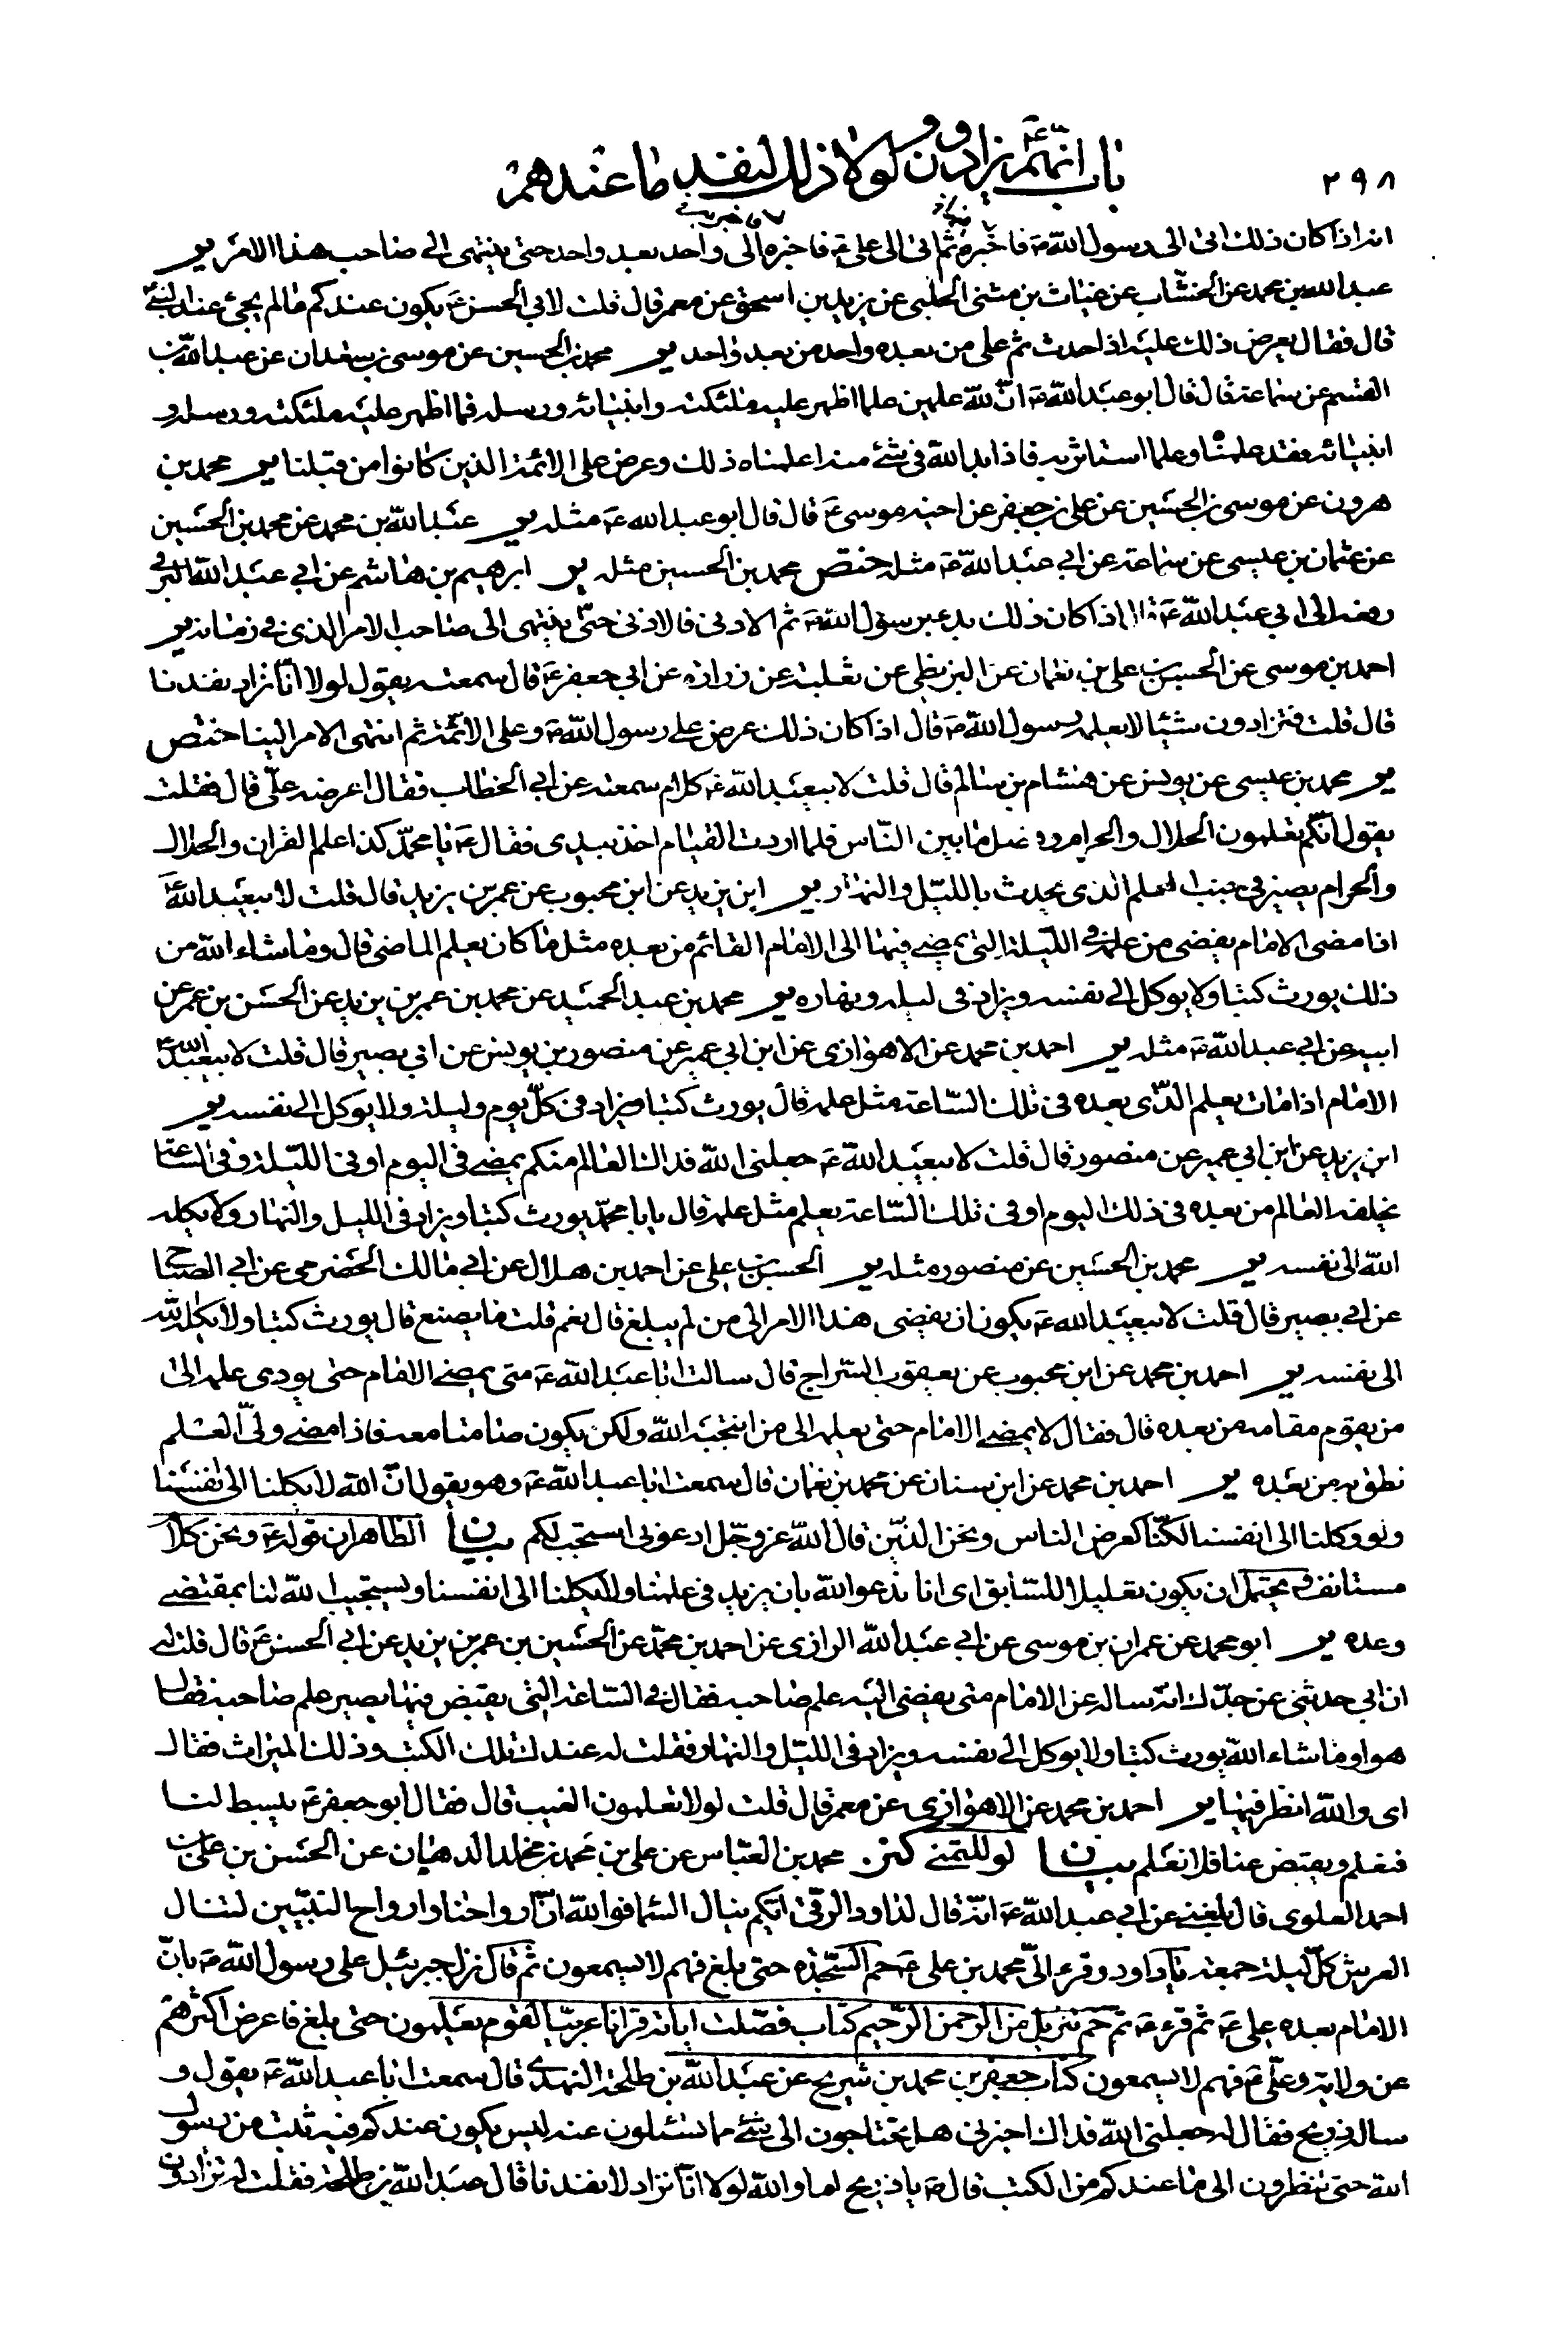 ٢٩٨
باب انّهم ع يزادون ولولا ذلك لنفد ما عندهم
انه اذا كان ذلك اتى الى رسول الله ص فاخبره ثم اتى الى على ع فاخبره الى واحد بعد واحد حتى ينتهى الى صاحب هذا الامر ير
عبد الله بن محمد عن الخشاب عن غياث بن مثنى الحلبى عن يزيد بن اسحق عن معمر قال قلت لابى الحسن ع يكون عندكم ما لم يجئ عند
قال فقال يعرض ذلك عليه اذا حدث ثم على من بعده واحد من بعد واحد ير محمد بن الحسين عن موسى بن سعدان عن عبد الله بن
القسم عن سماعة قال قال ابو عبد الله ع انّ لله علمين علما اظهر عليه ملئكته وانبيائه ورسله فما اظهر عليه ملئكته ورسله و
انبيائه فقد علمنا وعلما استاثر به فاذا بدا لله فى شئ منه اعلمناه ذلك وعرض على الائمة الذين كانوا من قبلنا ير محمد بن
هرون عن موسى بن الحسين عن على بن جعفر عن اخيه موسى ع قال قال ابو عبد الله ع مثله ير عبد الله بن محمد عن محمد بن الحسين
عن عثمان بن عيسى عن سماعة عن ابى عبد الله ع مثله ختص محمد بن الحسين مثله ير ابرهيم بن هاشم عن ابى عبد الله البرقى
رفعه الى ابى عبد الله ع قال اذا كان ذلك بدء برسول الله ص ثم الادنى فالادنى حتّى ينتهى الى صاحب الامر الذى فى زمانه ير
احمد بن موسى عن الحسين بن على بن نعمان عن البزنطى عن ثعلبة عن زرارة عن ابى جعفر ع قال سمعته يقول لولا انّا نزاد نفدنا
قال قلت فتزادون شيئا لا يعلمه رسول الله ص قال اذا كان ذلك عرض على رسول الله ص وعلى الائمّة ثم انتهى الامر الينا ختص
ير محمد بن عيسى عن يونس عن هشام بن سالم قال قلت لابيعبد الله ع كلام سمعته عن ابى الخطاب فقال اعرضه علىّ قال فقلت
يقول انّكم تعلمون الحلال والحرام وفصل ما بين النّاس فلما اردت القيام اخذ بيدى فقال ع يا محمّد كذا علم القران والحلال
والحرام يصير فى جنب العلم الذى يحدث بالليّل والنهار ير ابن يزيد عن ابن محبوب عن عمر بن يزيد قال قلت لابيعبد الله ع
اذا مضى الامام يفضى من علمه فى الليّلة التى يمضى فيها الى الامام القائم من بعده مثل ما كان يعلم الماضى قال وما شاء الله من
ذلك يورث كتبا ولا يوكل الى نفسه ويزاد فى ليله ونهاره ير محمد بن عبد الحميد عن محمد بن عمر بن يزيد عن الحسن بن عمر عن
ابيه عن ابى عبد الله ع مثله ير احمد بن محمد عن الاهوازى عن ابن ابى عمير عن منصور بن يونس عن ابى بصير قال قلت لابيعبد الله ع
الامام اذا مات يعلم الذّى بعده فى تلك السّاعة مثل علمه قال يورث كتبا ويزاد فى كلّ يوم وليلة ولا يوكل الى نفسه ير
ابن يزيد عن ابن ابى عمير عن منصور قال قلت لابيعبد الله ع جعلنى الله فداك العالم منكم يمضى فى اليوم او فى الليّلة وفى السّاعة
يخلفه العالم من بعده فى ذلك اليوم او فى تلك السّاعة يعلم مثل علمه قال يا با محمّد يورث كتبا ويزاد فى الليل والنهار ولا يكله
الله الى نفسه ير محمد بن الحسين عن منصور مثله ير الحسين بن على عن احمد بن هلال عن ابى مالك الحضرمى عن ابى الصباح
عن ابى بصير قال قلت لابيعبد الله ع يكون ان يفضى هذا الامر الى من لم يبلغ قال نعم قلت ما يصنع قال يورث كتبا ولا يكله الله
الى نفسه ير احمد بن محمد عن ابن محبوب عن يعقوب السّراج قال سالت ابا عبد الله ع متى يمضى الامام حتى يودى علمه الى
من يقوم مقامه من بعده قال فقال لا يمضى الامام حتى يعلمه الى من انتجبه الله ولكن يكون صامتا معه فاذا مضى ولىّ العلم
نطق به من بعده ير احمد بن محمد عن ابن سنان عن محمد بن نعمان قال سمعت ابا عبد الله ع وهو يقول انّ الله لا يكلنا الى انفسنا
ولو وكلنا الى انفسنا لكنّا كعرض الناس ونحن الذيّن قال الله عز وجّل ادعونى استجب لكم بيان الظاهر ان قوله ع ونحن كلام
مستانف ويحتمل ان يكون تعليلا للسّابق اى انا ندعو الله بان يزيد فى علمنا ولا يكلنا الى انفسنا ويستجيب الله لنا بمقتضى
وعده ير ابو محمد عن عمران بن موسى عن ابى عبد الله الرازى عن احمد بن محمّد عن الحسين بن عمر بن يزيد عن ابى الحسن ع قال قلت له
ان ابى حدثنى عن جدّك انه ساله عن الامام متى يفضى اليه علم صاحبه فقال فى السّاعة التى يقبض فيها يصير علم صاحبه فقال
هو او ما شاء الله يورث كتبا ولا يوكل الى نفسه ويزاد فى الليّل والنهار فقلت له عندك تلك الكتب وذلك الميراث فقال
اى والله انظر فيها ير احمد بن محمد عن الاهوازى عن معمر قال قلت لو لا تعلمون الغيب قال فقال ابو جعفر ع يبسط لنا
فنعلم ويقبض عنا فلا نعلم بيان لو للتمنى كنز محمد بن العبّاس عن على بن محمد بن مخلد الدهان عن الحسن بن على بن
احمد العلوى قال بلغنى عن ابى عبد الله ع انّه قال لداود الرقّى ايّكم ينال السّما فوالله انّ ارواحنا وارواح النبيّين لتنال
العرش كلّ ليلة جمعة يا داود وقرء ابى محمد بن على ع حم السّجدة حتى بلغ فهم لا يسمعون ثم قال نزل جبرئيل على رسول الله ص بانّ
الامام بعده على ع ثم قرء ع حم تنزيل من الرحمن الرّحيم كتاب فصّلت اياته قرانا عربيّا لقوم يعلمون حتى بلغ فاعرض اكثرهم
عن ولاية على ع فهم لا يسمعون كتاب جعفر بن محمد بن شريح عن عبد الله بن طلحة النهدى قال سمعت ابا عبد الله ع يقول و
ساله ذريح فقال له جعلنى الله فداك اخبرنى هل تحتاجون الى شئ مما تسئلون عنه ليس يكون عندكم فيه ثبت من رسول
الله حتى تنظرون الى ما عندكم من الكتب قال ع يا ذريح اما والله لولا انّا نزاد لانفدنا قال عبد الله بن طلحة فقلت له تزادون